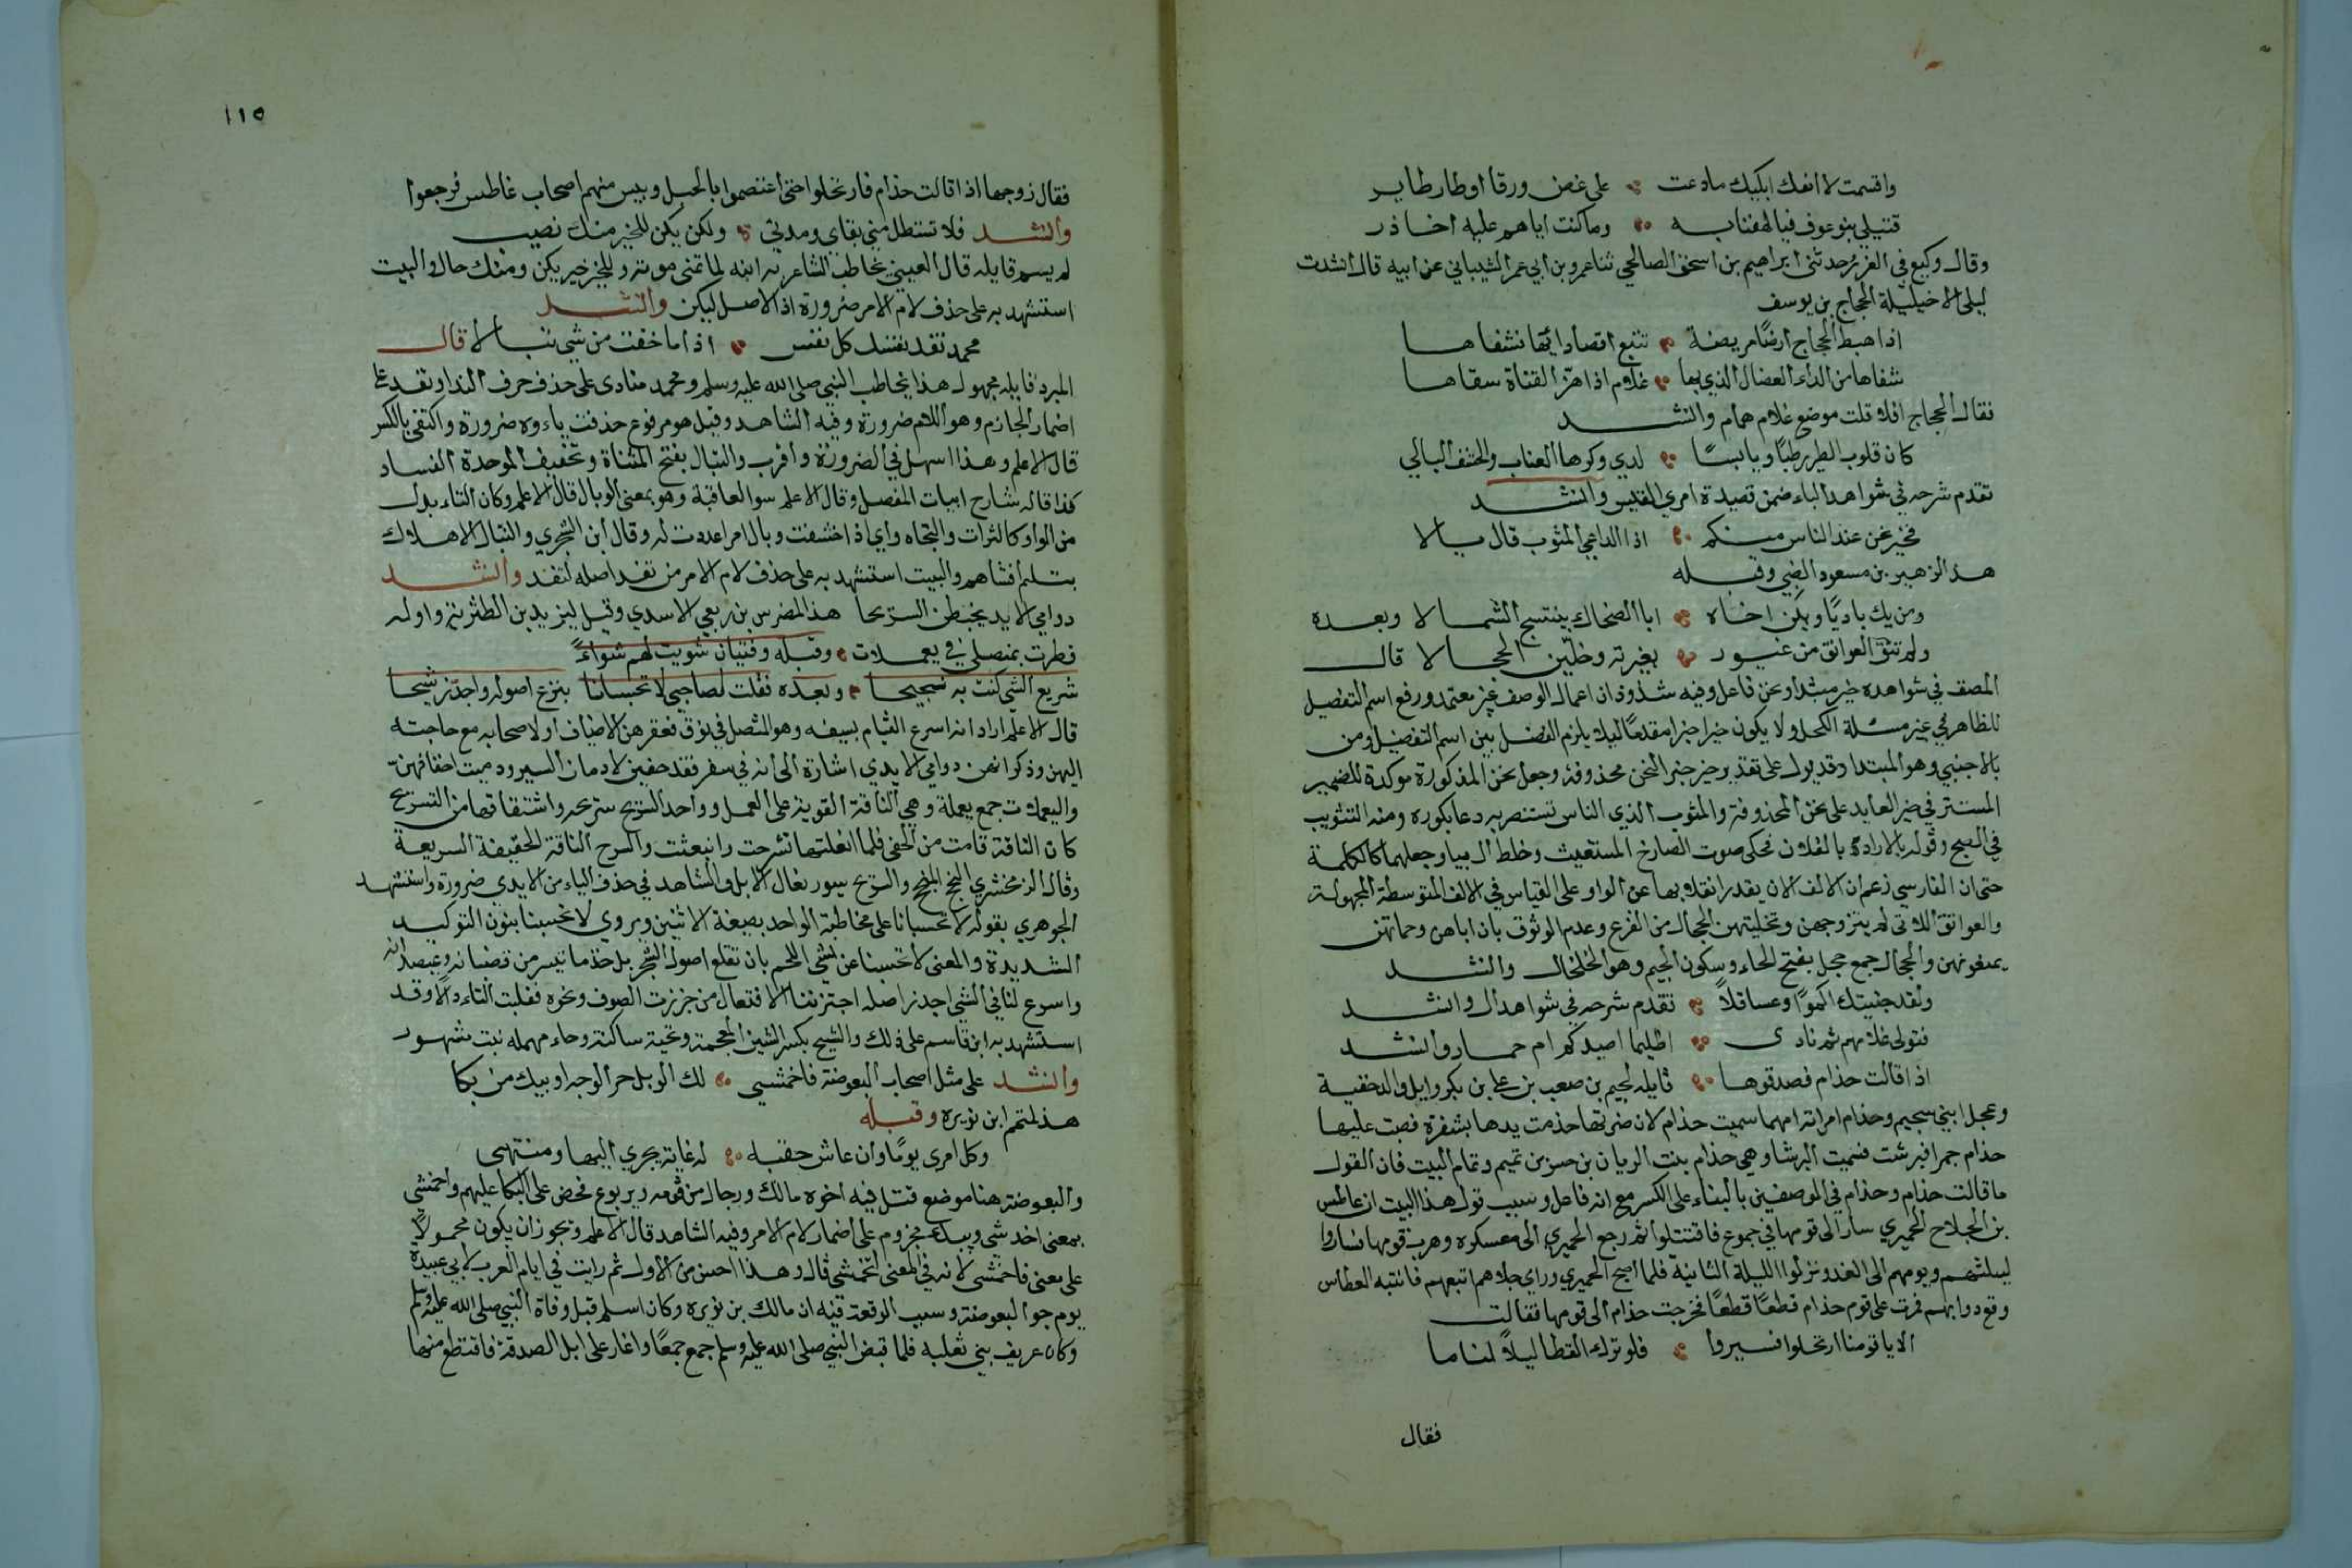 واقسمت لا انفك ابكيك مادعت على غصن ورقا اوطار طاير
قتيل بنو عوف فيا لهفتا به وما كنت اياهم عليه احاذر
وقال وكيع في الغرر حدثني ابراهيم بن اسحق الصالحي ثنا عمرو بن ابي عمر الشيباني عن ابيه قال انشدت
ليلى الاخيلية الحجاج بن يوسف
اذا هبط الحجاج ارضا مريضة تتبع اقصا دائها فشفاها
شفاها من الداء العضال الذي بها غلام اذا هز القناة سقاها
فقال الحجاج افلا قلت موضع غلام همام وانشد
كان قلوب الطير رطبا ويابسا لدي وكرها العناب والحشف البالي
تقدم شرحه في شواهد الباء ضمن قصيدة امري القيس وانشد
فخير نحن عند الناس منكم اذا الداعي المثوب قال يالا
هذا لزهير بن مسعود الضبي وقبله
ومن يك باديا ويكن اخاه ابا الضحاك ينتسج الشمالا وبعده
ولم تثق العواتق من غيور بغيرته وخلين الحجالا قال
المصنف في شواهده خير مبتدا ونحن فاعل وفيه شذوذان اعمال الوصف غير معتمد ورفع اسم التفضيل
للظاهر في غير مسئلة الكحل ولا يكون خير خبرا مقدما ليلا يلزم الفصل بين اسم التفضيل ومن
بالاجنبي وهو المبتدا وقد يول على تقدير خير خبر لنحن محذوفة وجعل نحن المذكورة موكدة للضمير
المستتر في خير العايد على نحن المحذوفة والمثوب الذي الناس تستنصر به دعا بكوره ومنه التثويب
في الصبح وقوله يالا اراد يا لفلان فحكى صوت الصارخ المستغيث وخلط ال بيا وجعلهما كالكلمة
حتى ان الفارسي زعم ان الالف الان يقدر انقلابها عن الواو على القياس في الالف المتوسطة المجهولة
والعواتق اللاتي لم يتزوجن وتخليتهن الحجال من الفزع وعدم الوثوق بان اباهن وحماتهن
يمنعونهن والحجال جمع حجل بفتح الحاء وسكون الجيم وهو الخلخال وانشد
ولقد جنيتك اكموا وعساقلا تقدم شرحه في شواهد ال وانشد
فتولى غلامهم ثم نادى اظليما اصيدكم ام حمار وانشد
اذا قالت حذام فصدقوها قايله لجيم بن صعب بن علي بن بكر وايل والد حنفية
وعجل ابني لجيم وحذام امراته امهما سميت حذام لان ضرتها حذمت يدها بشفرة فصبت عليها
حذام جمرا فبرشت فسميت البرشا وهي حذام بنت الريان بن حسر بن تميم وتمام البيت فان القول
ما قالت حذام وحذام في الموضعين بالبناء على الكسر مع انه فاعل وسبب قول هذا البيت ان عاطس
بن الجلاح الحميري سار الى قومها في جموع فاقتتلوا ثم رجع الحميري الى معسكره وهرب قومها فساروا
ليلتهم ويومهم الى الغد ونزلوا الليلة الثانية فلما اصبح الحميري وراى جلاهم اتبعهم فانتبه القطا من
وقع دوابهم فمرت على قوم حذام قطعا قطعا فخرجت حذام الى قومها فقالت
الا يا قومنا ارتحلوا فسيروا فلو ترك القطا ليلا لناما
فقال
١١٥
فقال زوجها اذا قالت حذام فارتحلوا حتى اعتصموا بالجبل ويئس منهم اصحاب عاطس فرجعوا
وانشد فلا تستطل مني بقاي ومدتي ولكن يكن للخير منك نصيب
لم يسم قايله قال العيني يخاطب الشاعر به ابنه لما تمنى موته وللخير خبر يكن ومنك حال والبيت
استشهد به على حذف لام الامر ضرورة اذ الاصل ليكن وانشد
محمد تفد نفسك كل نفس اذا ما خفت من شي تبالا قال
المبرد قايله مجهول هذا يخاطب النبي صلى الله عليه وسلم ومحمد منادى على حذف حرف الندا وتفد على
اضمار الجازم وهو اللام ضرورة وفيه الشاهد وقيل هو مرفوع حذفت ياءوه ضرورة واكتفى بالكسر
قال الاعلم وهذا اسهل في الضرورة وأقرب والتبال بفتح المثناة وتخفيف الموحدة الفساد
كذا قاله شارح ابيات المفصل وقال الاعلم سوا العاقبة وهو بمعنى الوبال قال الاعلم وكان التاء بدل
من الواو كالتراث والتجاه واي اذا خشيت وبال امر اعددت له وقال ابن الشجري والتبال الاهلاك
استشهد به على حذف لام الامر من تفد اصله لتفد وانشد
دوامي الايد يخبطن السريحا هذا لمضرس بن ربعي الاسدي وقيل ليزيد بن الطثرية واوله
فطرت بمنصلي في يعملات وقبله وفتيان شويت لهم شواء
سريع الشي كنت به نجيحا وبعده فقلت لصاحبي لا تحبسانا بنزع اصوله واجدز شيحا
قال الاعلم اراد انه اسرع القيام بسيفه وهو المنصل في نوق فعقرهن للاضياف او لاصحابه مع حاجته
اليهن وذكر انهن دوامي الايدي اشارة الى انه في سفر فقد حفين لادمان السير ودميت اخفافهن
واليعملات جمع يعملة وهي الناقة القوية على العمل وواحد السريح سريحه واشتقاقها من التسريح
كان الناقة قامت من الحفى فلما انعلتها تشرحت وانبعثت والسرح الناقة الخفيفة السريعة
وقال الزمخشري النجيح المنجح والسريح سيور نعال الابل والشاهد في حذف الياء من الايدي ضرورة واستشهد
الجوهري بقوله لا تحبسانا على مخاطبة الواحد بصيغة الاثنين ويروى لا تحبسنا بنون التوكيد
الشديدة والمعنى لا تحبسنا عن شي اللحم بان تقلع اصول الشجر بل خذ ما تيسر من قضبانه وعيدانه
واسرع لنا في الشي اجدز اصله اجتز افتعال من جززت الصوف ونحوه فقلبت التاء دالا وقد
استشهد به ابن قاسم على ذلك والشيح بكسر الشين المعجمة وتحية ساكنة وحاء مهمله نبت مشهور
وانشد على مثل اصحاب البعوضة فاخمشي لك الويل حر الوجه او يبك من بكا
هذا لمتمم ابن نويره وقبله
وكل امرى يوما وان عاش حقبه له غاية يجري اليها ومنتهى
والبعوضة هنا موضع قتل فيه اخوه مالك ورجال من قومه ير يربوع فحض على البكا عليهم واخمشي
بمعنى اخدشي ويبك مجزوم على اضمار لام الامر وفيه الشاهد قال الاعلم ويجوز ان يكون محمولا
على معنى فاخمشي لانه في المعنى لتخمشي قال وهذا احسن من الاول ثم رايت في ايام العرب لابي عبيدة
يوم جو البعوضة وسبب الوقعة فيه ان مالك بن نويره وكان اسلم قبل وفاة النبي صلى الله عليه وسلم
وكان عريف بني ثعلبة فلما قبض النبي صلى الله عليه وسلم جمع جمعا واغار على ابل الصدقة فاقتطع منها